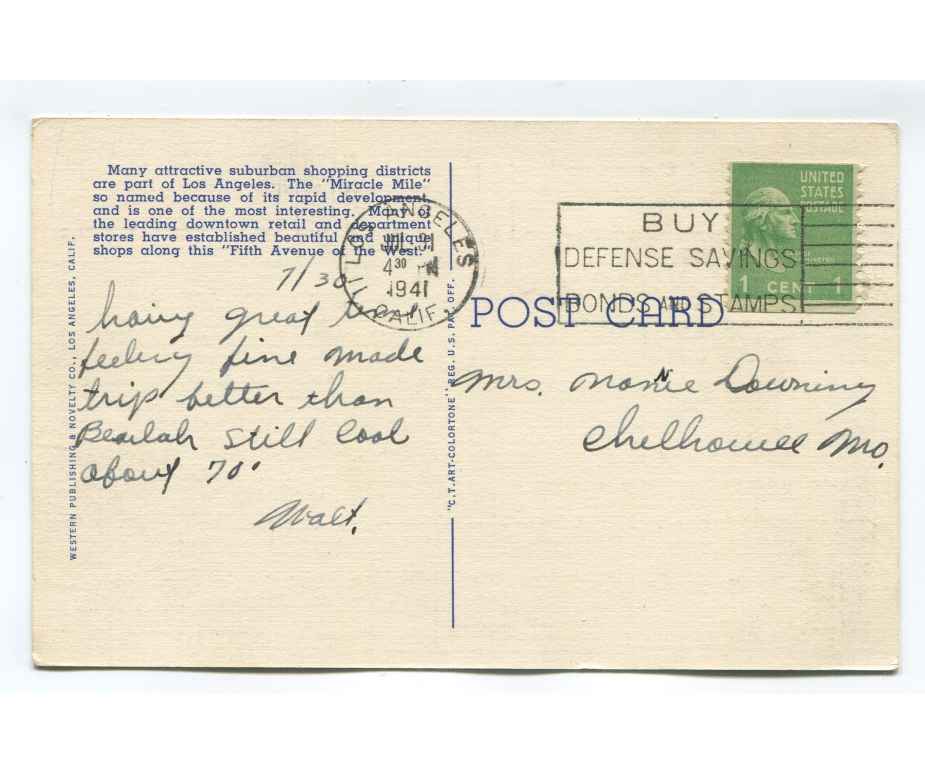 Many attractive suburban shopping districts
are part of Los Angeles. The "Miracle Mile"
so named because of its rapid development,
and is one of the most interesting. Many of
the leading downtown retail and department
stores have established beautiful and unique
shops along this "Fifth Avenue of the West."
7/30
having great time
feeling fine made
trip better than
Beaulah still cool
about 70°
Walt.
WESTERN PUBLISHING & NOVELTY CO., LOS ANGELES, CALIF.
"C.T. ART-COLORTONE" REG. U.S. PAT. OFF.
LOS ANGELES
JUL 31
4 30 PM
1941
CALIF.
BUY
DEFENSE SAVINGS
BONDS AND STAMPS
UNITED
STATES
POSTAGE
1 CENT 1
POST CARD
Mrs. Nannie Downing
Chelhowee Mo.